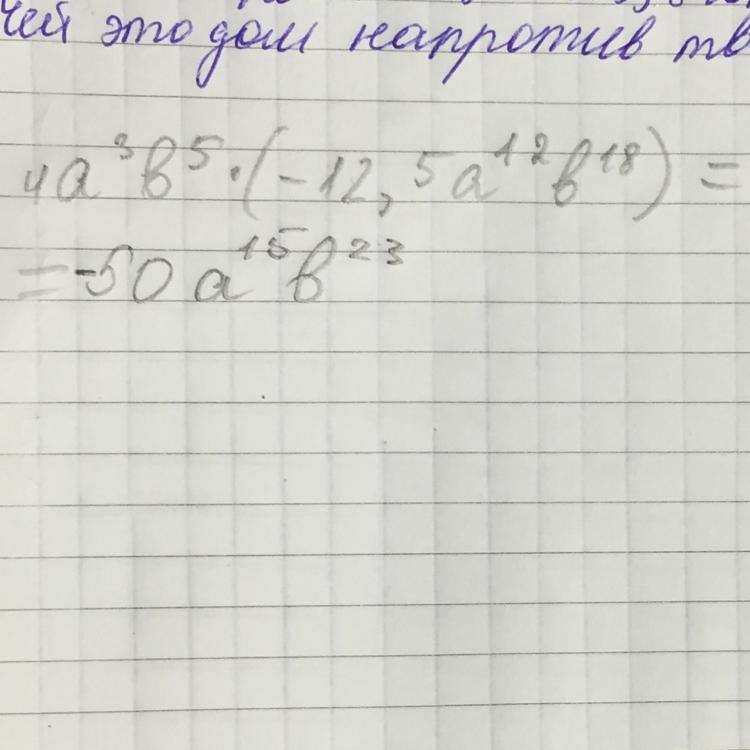 чей это дом напротив
4a³b⁵·(-12,5a¹²b¹⁸)=
=-50a¹⁵b²³